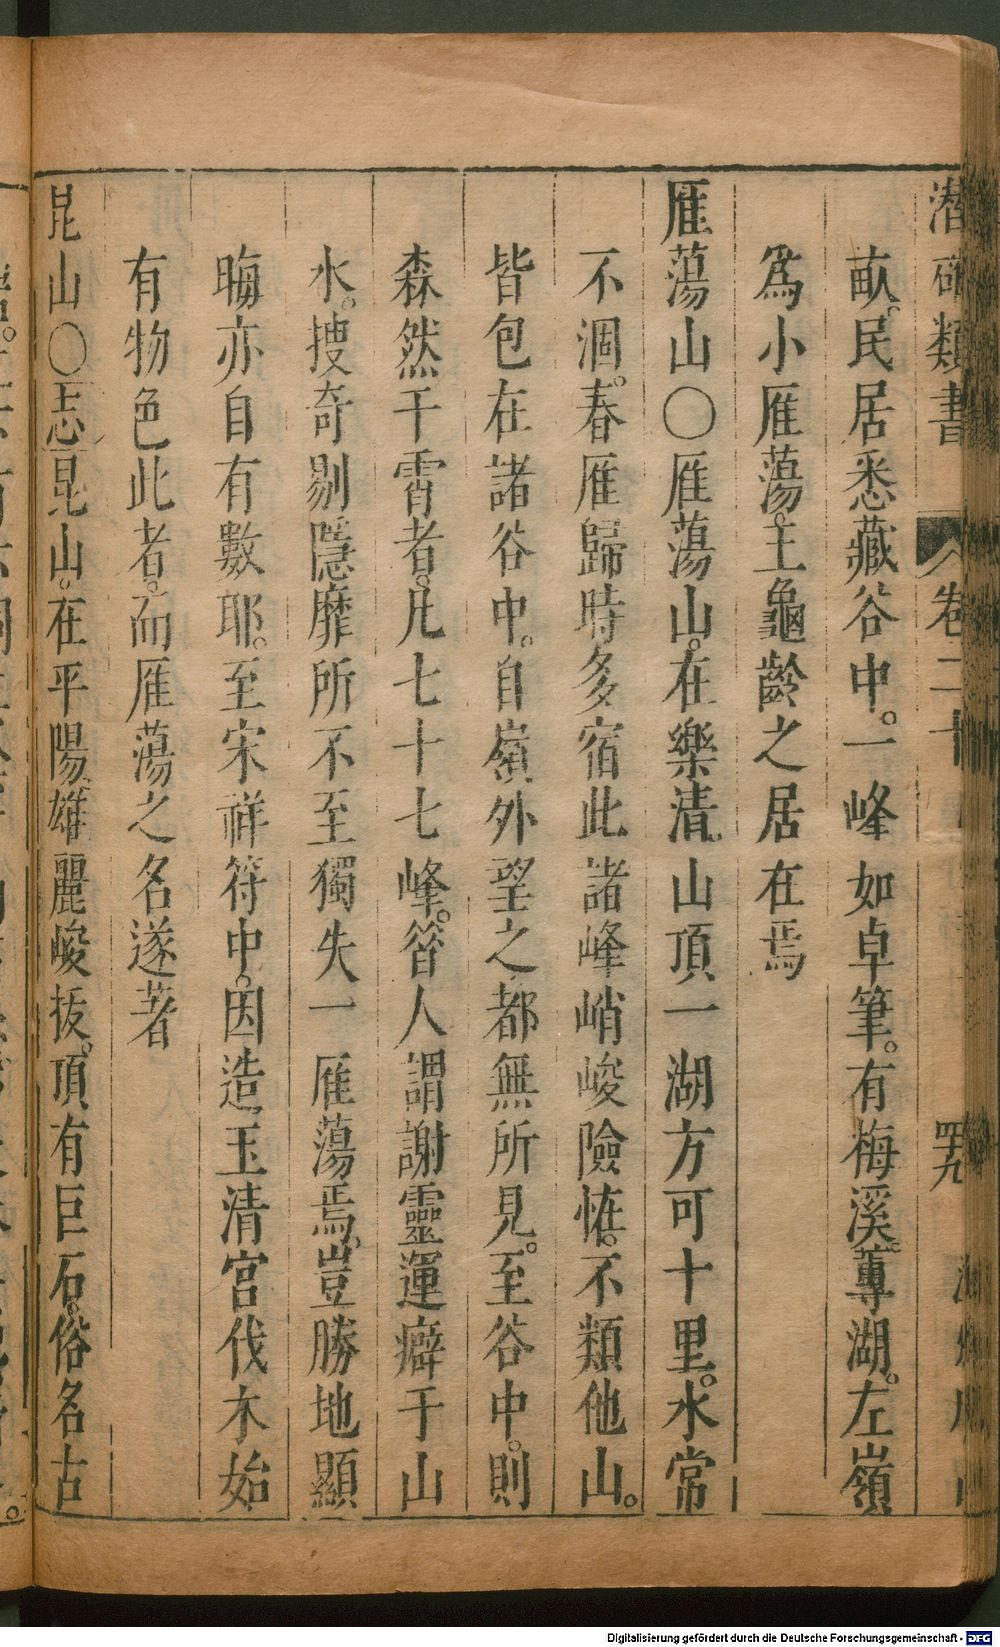 潛確類書 卷二十 四九
畝。民居悉藏谷中。一峰如卓筆。有梅溪。蓴湖。左嶺
爲小雁蕩。王龜齡之居在焉
雁蕩山〇雁蕩山。在樂清。山頂一湖方可十里。水常
不涸。春雁歸時多宿此諸峰峭峻險恠。不類他山。
皆包在諸谷中。自嶺外望之都無所見。至谷中。則
森然干霄者。凡七十七峰。昝人謂謝靈運癖于山
水。搜奇剔隱靡所不至獨失一雁蕩焉。豈勝地顯
晦亦自有數耶。至宋祥符中。因造玉清宮伐木始
有物色此者。而雁蕩之名遂著
昆山〇志昆山。在平陽雄麗峻拔。頂有巨石。俗名古
Digitalisierung gefördert durch die Deutsche Forschungsgemeinschaft - DFG